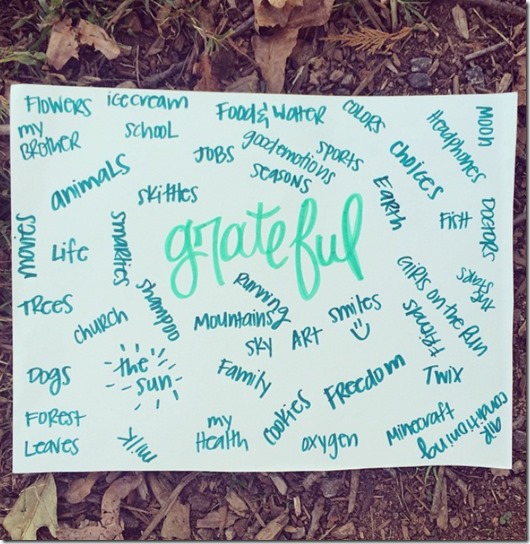 FLOWERS
ice cream
FOOD & WATER
COLORS
HEADPHONES
MOON
my BROTHER
SCHOOL
JOBS
good emotions
SPORTS
SEASONS
CHOICES
animals
Skittles
EARTH
FISH
DOCTORS
movies
Life
smarties
grateful
GIRLS ON THE RUN
TREES
church
shampoo
running
MOUNTAINS
SKY
ART
smiles
friends
DOGS
the sun
Family
FREEDOM
TWIX
FOREST
LEAVES
milk
my Health
cookies
oxygen
Minecraft
AIR conditioning